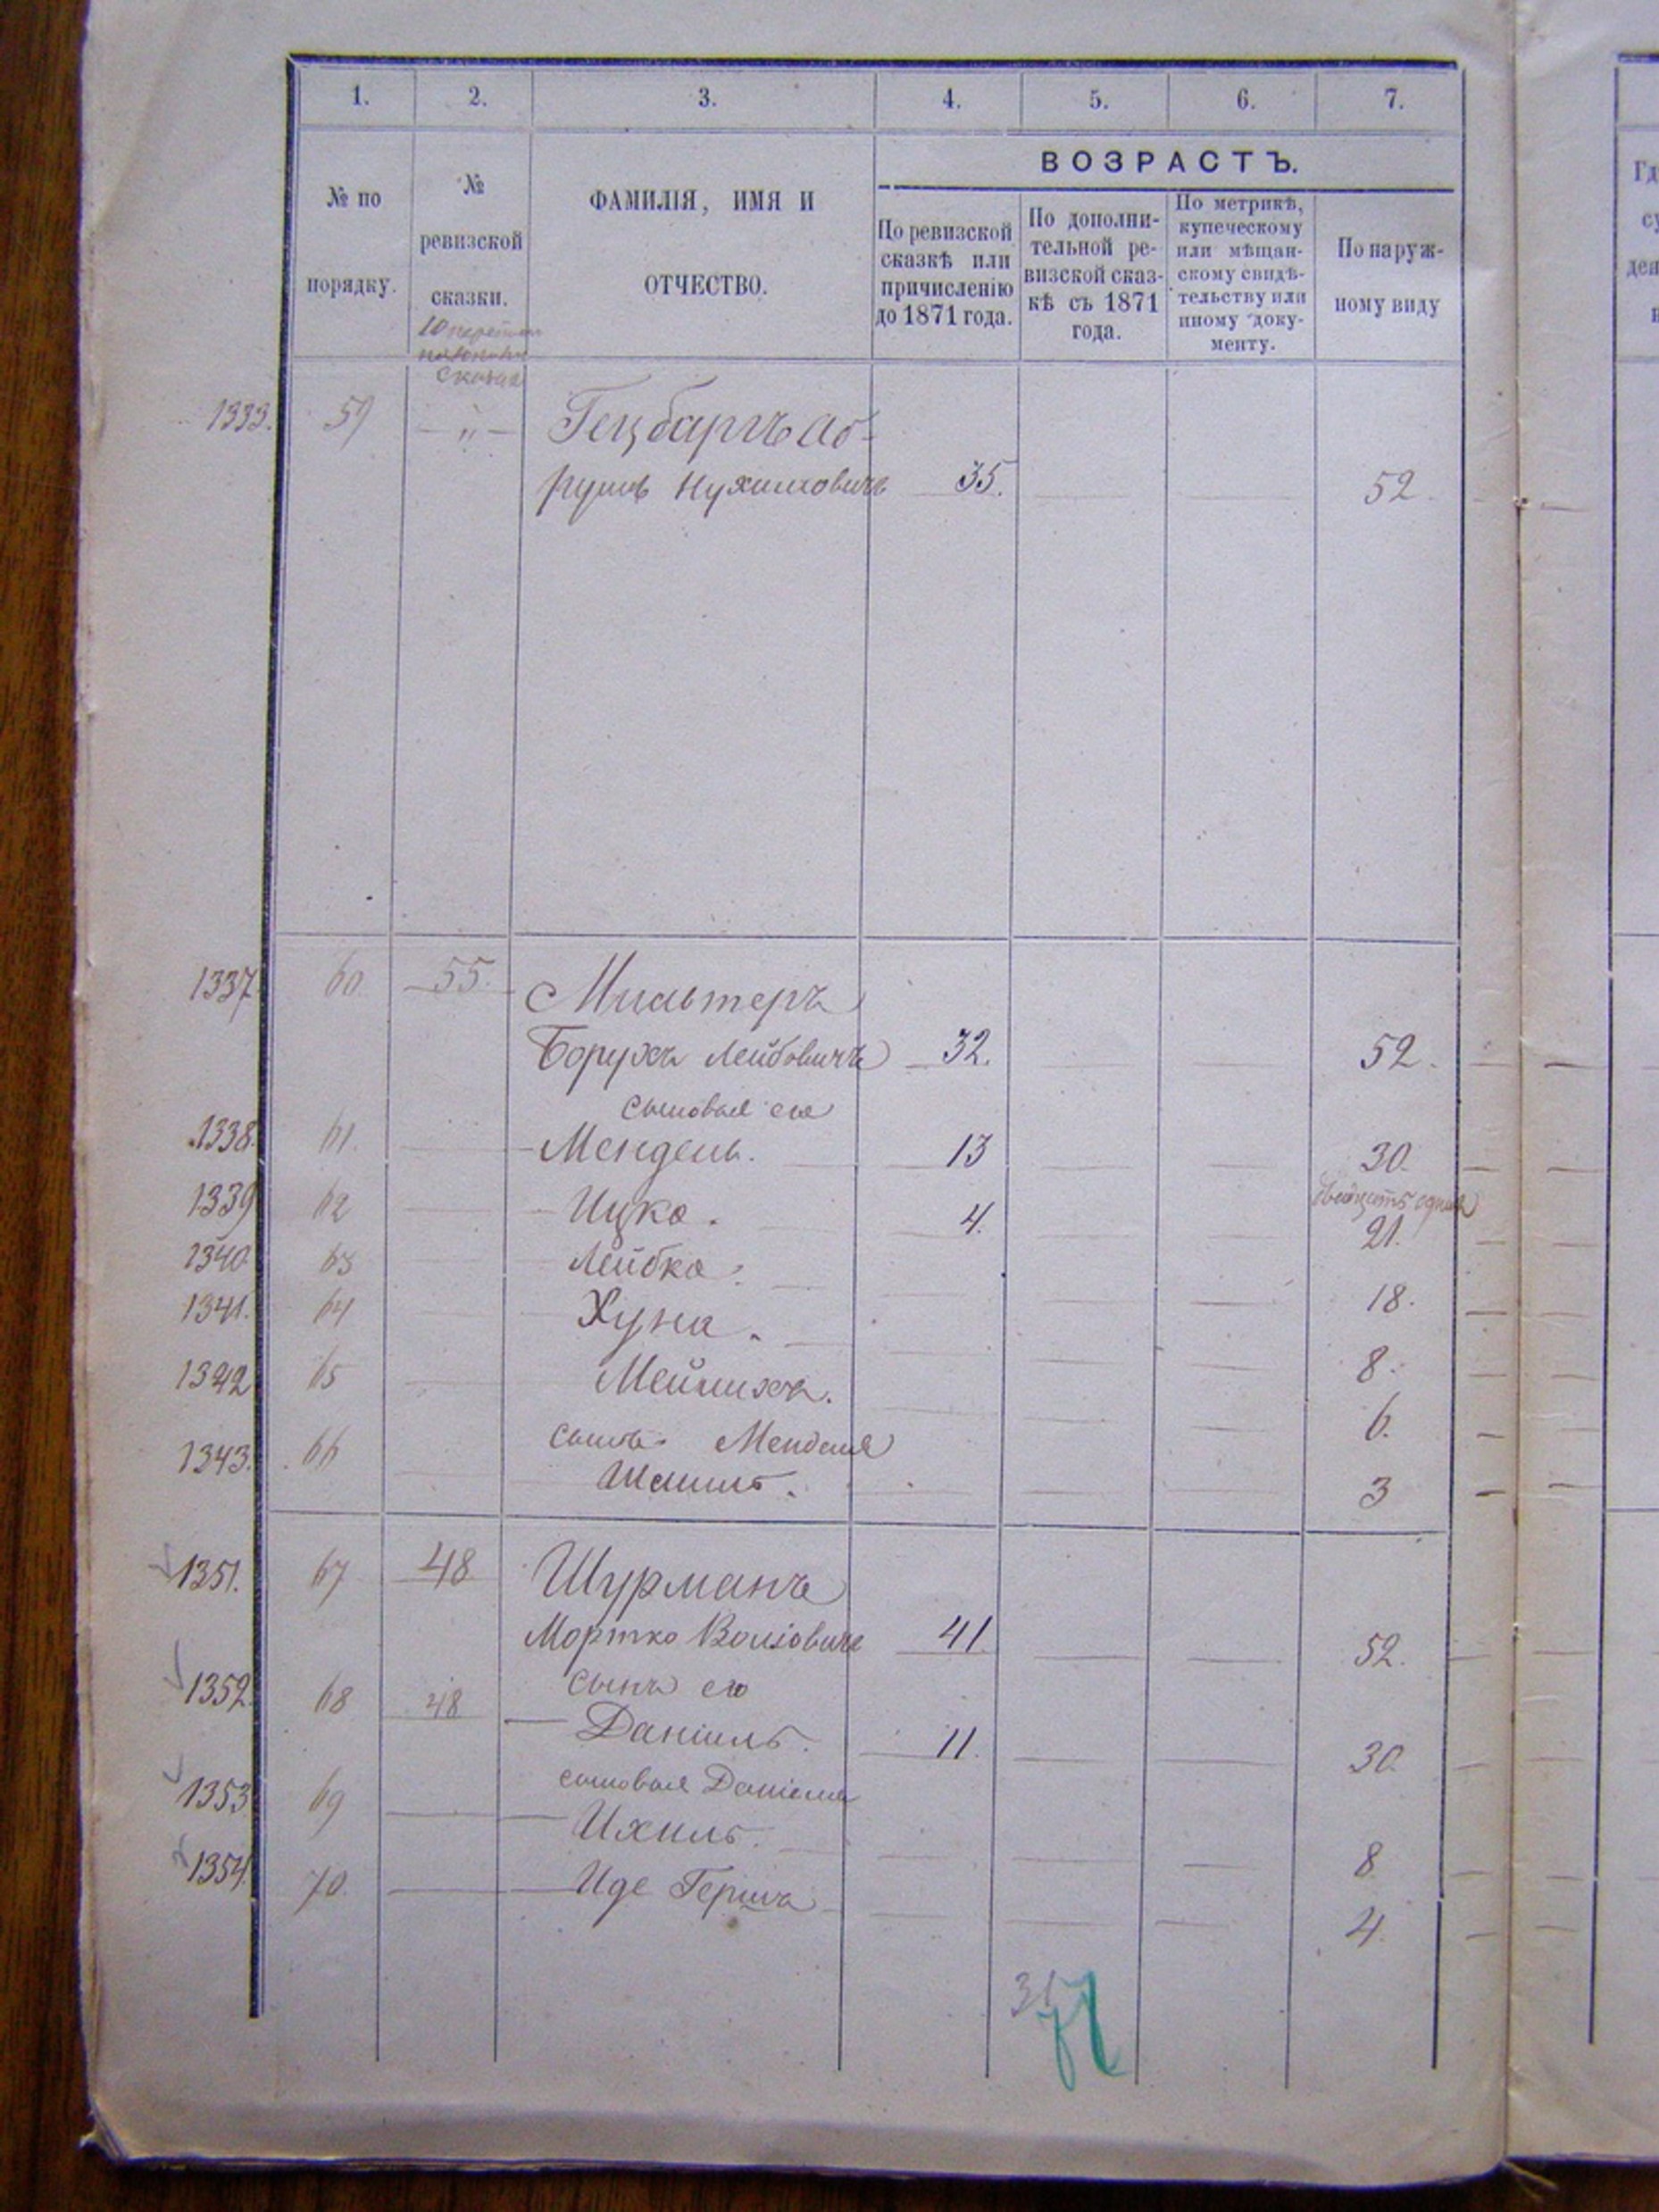 1. 2. 3. 4. 5. 6. 7.
№ по порядку.
№ ревизской сказки.
ФАМИЛІЯ, ИМЯ И
ОТЧЕСТВО.
ВОЗРАСТЪ.
По ревизской
сказкѣ или
причисленію
до 1871 года.
По дополни-
тельной ре-
визской сказ-
кѣ съ 1871
года.
По метрикѣ,
купеческому
или мѣщан-
скому свидѣ-
тельству или
иному доку-
менту.
По наруж-
ному виду
1333. 59 — „ — Гецбаргъ Аб-
румъ Нухимовичъ 35. 52.
1337 60. 55. Мильтеръ
Борухъ Лейбовичъ 32. 52.
сыновья его
1338. 61. Мендель. 13 30.
двадцать одинъ
1339 62 Ицко. 4. 21.
1340 63 Лейбко. 18.
1341. 64 Хуна. 8.
1342 65 Мейлихъ. 6.
сынъ Менделя
1343. 66 Шмиль. 3
1351. 67 48 Шурманъ
Мортко Волковичъ 41. 52.
сынъ его
1352. 68 48 Даніиль. 11. 30.
сыновья Даніеля
1353 69 Ихиль. 8
1354. 70. Иде Гершъ 4.